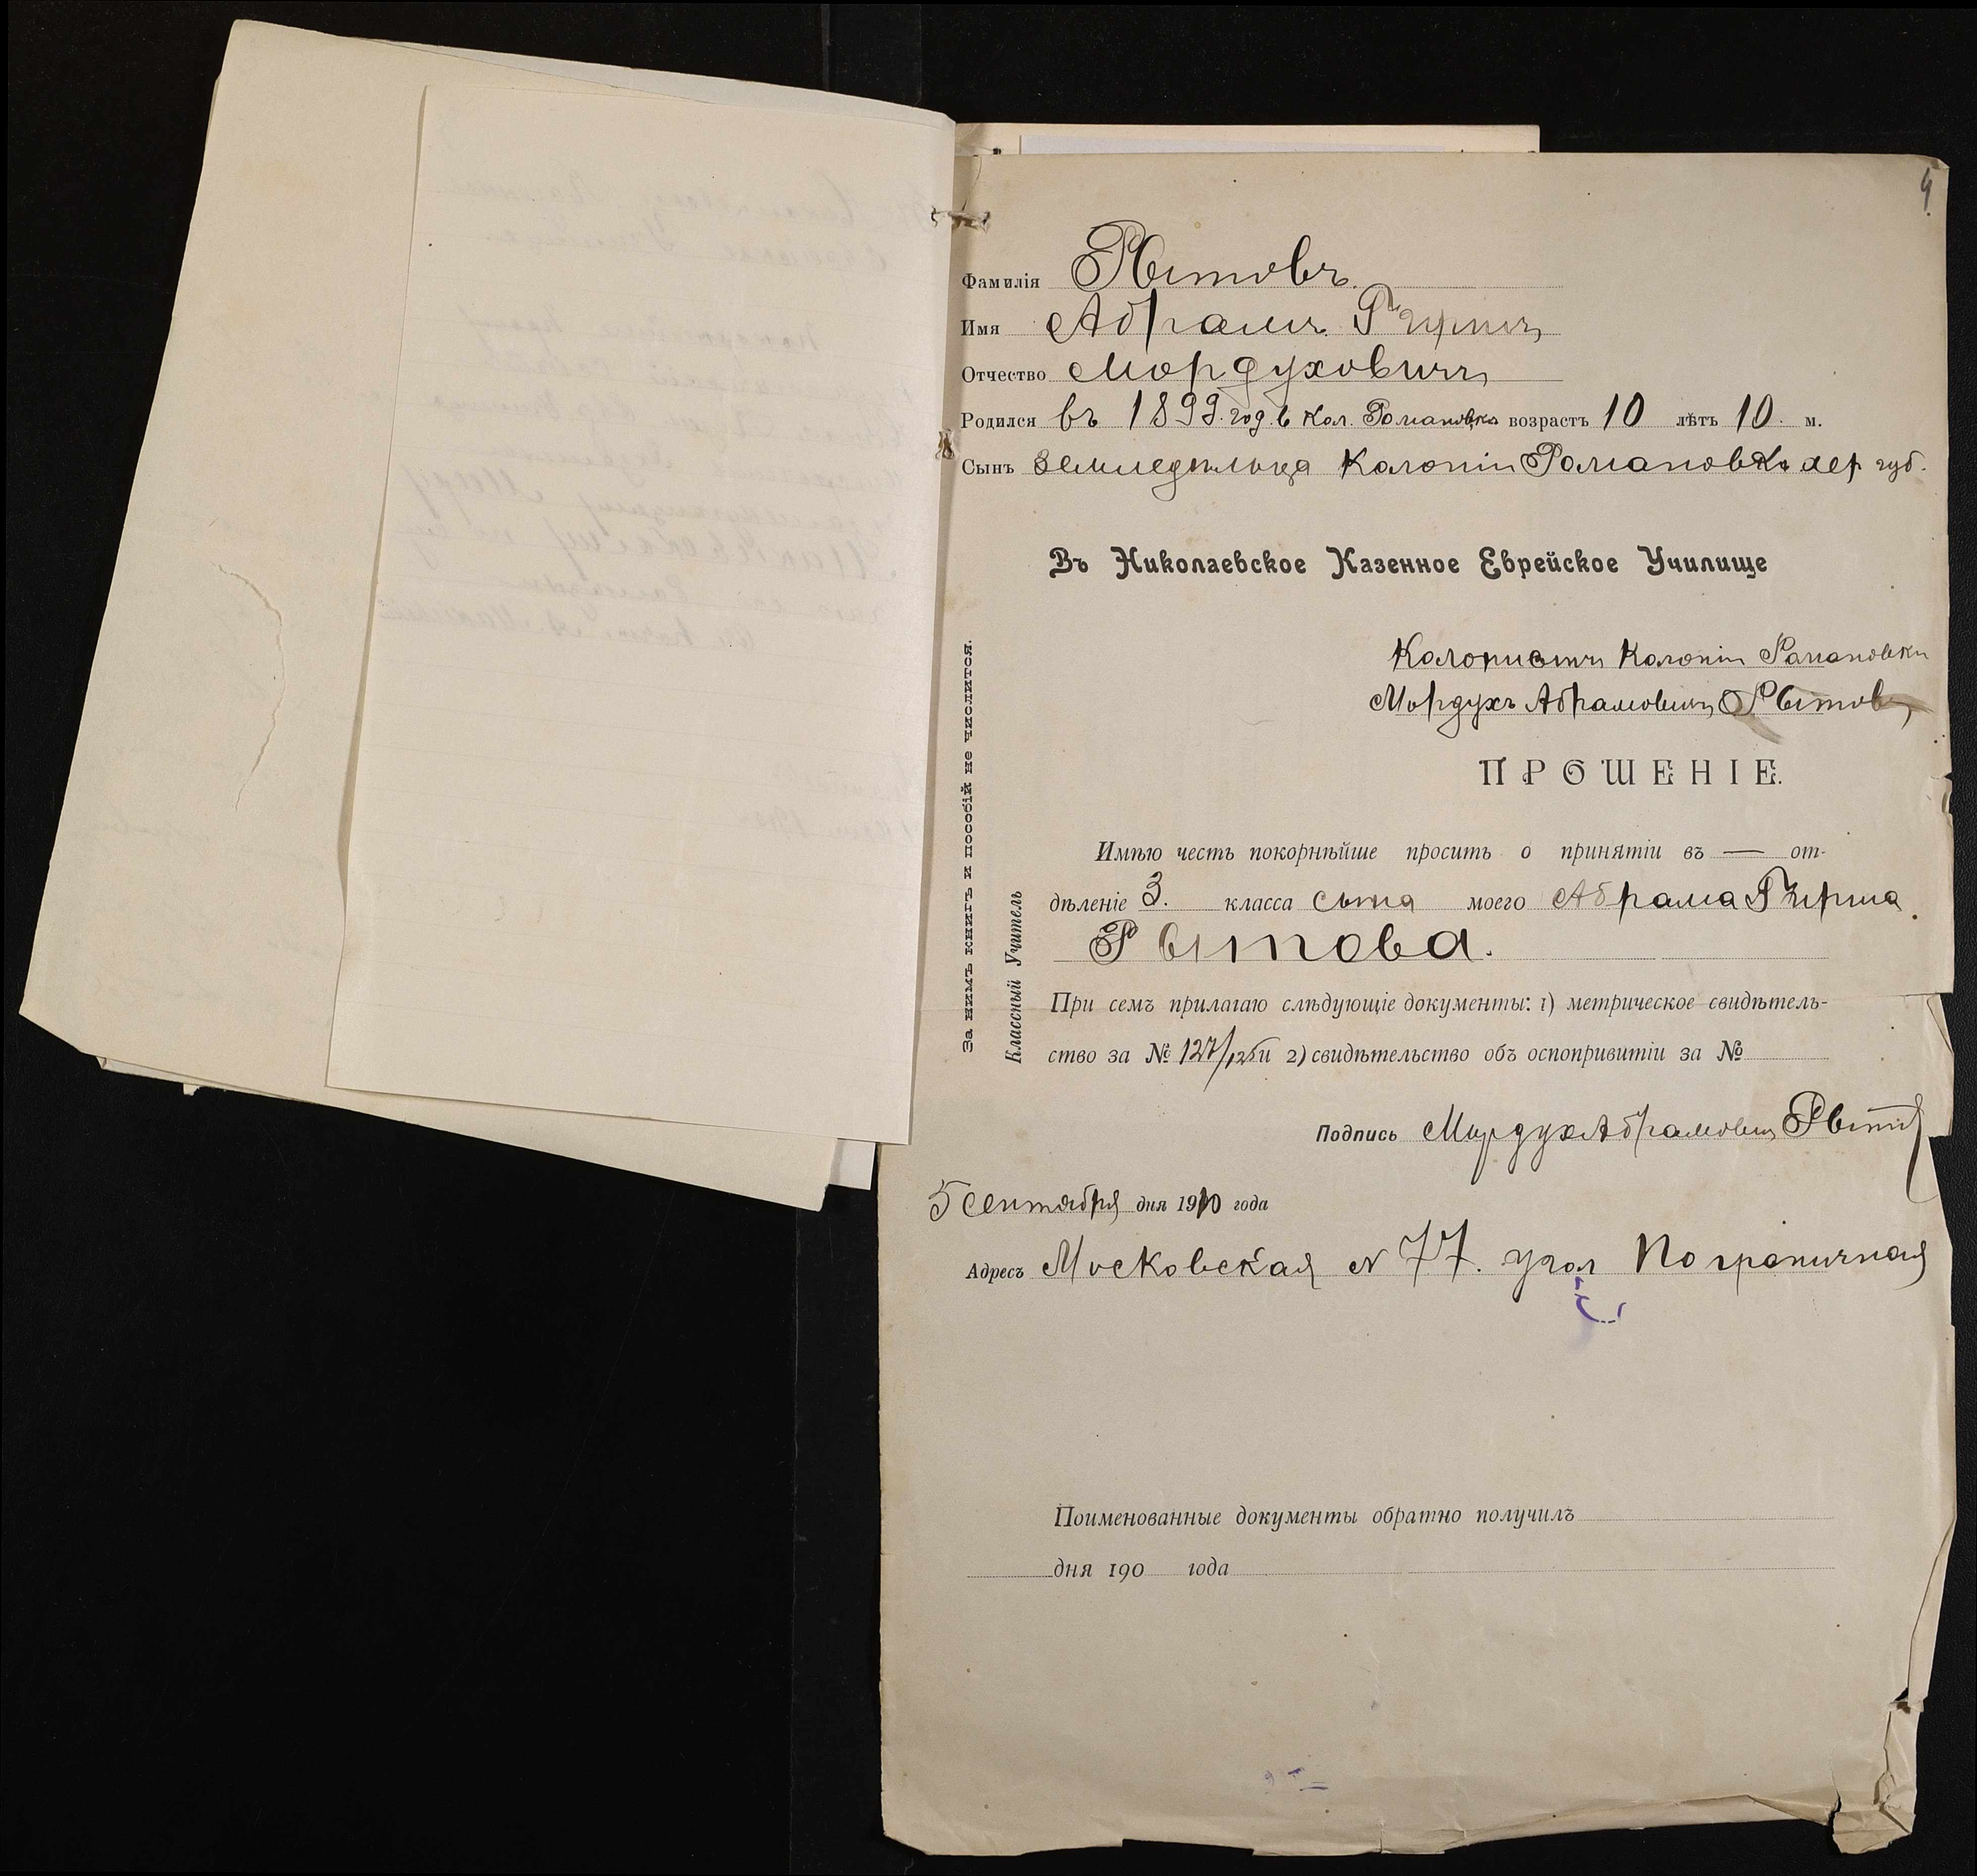 4
Фамилія Рытовъ.
Имя Абрамъ Гиршъ
Отчество Мордуховичъ
Родился въ 1899 год. в Кол. Романовка возрастъ 10 лѣтъ 10. м.
Сынъ земледѣльца Колоніи Романовки хер губ.
Въ Николаевское Казенное Еврейское Училище
Колонистъ Колоніи Романовки
Мордухъ Абрамовичъ Рытовъ
ПРОШЕНІЕ.
Имѣю честь покорнѣйше просить о принятіи въ — от-
дѣленіе 3. класса сына моего Абрама Гирша
Рытова.
При семъ прилагаю слѣдующіе документы: 1) метрическое свидѣтель-
ство за № 127/ 2) свидѣтельство объ оспопривитіи за №
Подпись Мордух Абрамович Рытов
5 Сентября дня 1910 года
Адресъ Московская N 77. угол Пограничная
Поименованные документы обратно получилъ
дня 190 года
За нимъ книгъ и пособій не числится.
Классный Учитель